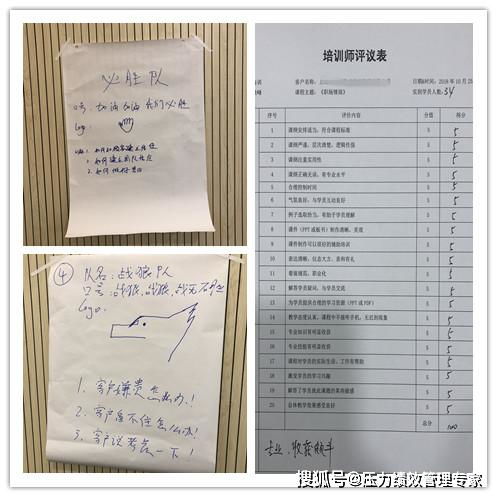 必胜队
口号：加油加油我们必胜
logo
④ 队名：战狼队
口号：战狼，战狼，战无不胜
logo：
1. 客户嫌贵怎么办！
2. 客户
3. 客户说考虑一下！
培训师评议表
客户名称：
日期&时间：2018年10月25
课程主题：《职场情商》
实到学员人数：34
序号 评价内容 分值 得分
1 课纲安排适当，符合课程标准 5 5
2 课纲严谨，层次清楚，逻辑性强 5 5
3 课纲注重实用性 5 5
4 课纲正确无误，有专业水平 5 5
5 合理控制时间 5 5
6 气氛良好，与学员互动良好 5 5
7 例子选取恰当，有助于学员理解 5 5
8 课件（PPT或板书）制作清晰、美观 5 5
9 课件制作可以很好的辅助培训 5 5
10 表达清晰，仪态大方，着装有礼 5 5
11 着装规范，职业化 5 5
12 解答学员疑问，与学员交流 5 5
13 为学员提供合理的学习资源（PPT或PDF） 5 5
14 教学态度认真，课程中不接听手机，无迟到现象 5 5
15 专业知识有明显收获 5 5
16 专业技能有明显收获 5 5
17 课程对学员的实际生活、工作有帮助 5 5
18 激发学员的学习兴趣 5 5
19 解答了学员就此课题的某些疑惑 5 5
20 总体教学效果感受良好 5 5
总分 100
专业、收获颇丰
搜狐号@压力绩效管理专家